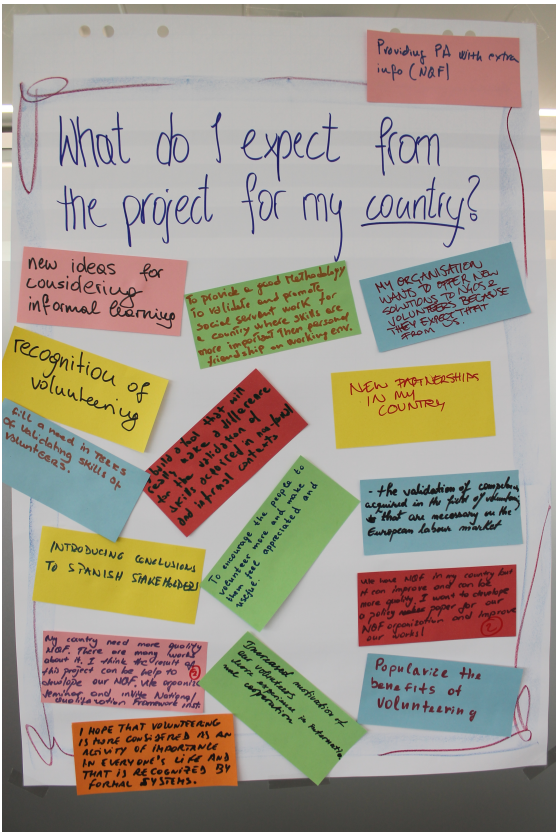 Providing PA with extra
info (NQF)
What do I expect from
the project for my country?
new ideas for
considering
informal learning
To provide a good Methodology
to validate and promote
social servant work for
a country where skills are
more important then personal
friendship on working env.
MY ORGANISATION
WANTS TO OFFER NEW
SOLUTIONS TO NGOS &
VOLUNTEERS BECAUSE
THEY EXPECT THAT
FROM US.
recognition of
volunteering
NEW PARTNERSHIPS
IN MY
COUNTRY
build a tool that will
really make a difference
for the validation of
skills in non formal
and informal contexts
fill a need in TERMS
of validating skills of
volunteers.
To encourage the people to
volunteer more and make
them feel appreciated and
useful.
- the validation of
acquired in the field of
that are necessary on the
European labour market
INTRODUCING CONCLUSIONS
TO SPANISH STAKEHOLDERS
We have NQF in my country but
it can improve and can be
more quality. I want to develope
a policy paper for our
NQF organization and improve
our works!
2
My country need more quality
NQF. There are many works
about it. I think the result of
this project can be help to
develope our NQF. We organise
seminar and invite National
Qualification Framework inst.
Increased motivation of
volunteers
experience in
cooperation
Popularize the
benefits of
volunteering
I HOPE THAT VOLUNTEERING
IS MORE CONSIDERED AS AN
ACTIVITY OF IMPORTANCE
IN EVERYONE'S LIFE AND
THAT IS RECOGNIZED BY
FORMAL SYSTEMS.